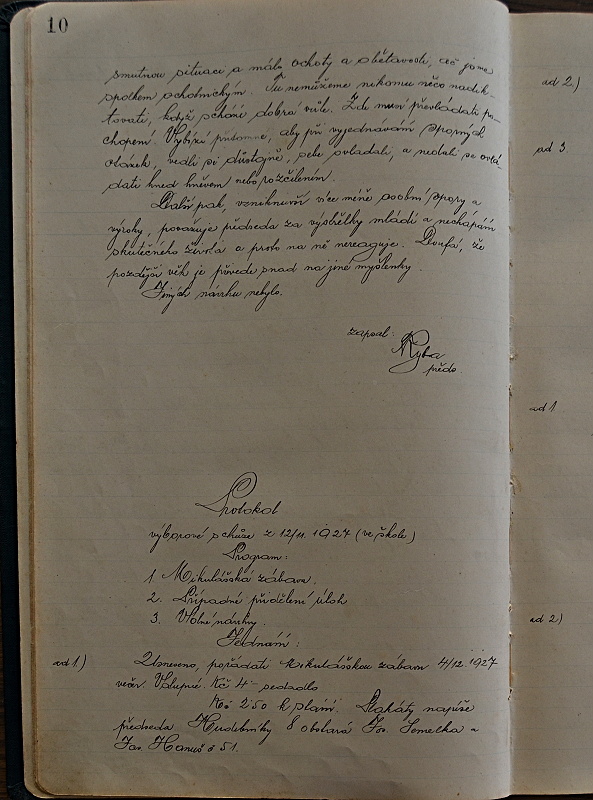 10
smutnou situaci a málo ochoty a obětavosti, ač jsme
spolkem ochotnickým. Tu nemůžeme nikomu něco nadik-
tovati, když schází dobrá vůle. Zde musí převládati po-
chopení. Vybízí přítomné, aby při vyjednávání sporných
otázek, vedli si důstojně, sebe ovládali, a nedali se ovlá-
dati hned hněvem nebo rozčilením.
Další pak, vzniknuvší více méně osobní spory a
výroky, považuje předseda za výstřelky mládí a nechápání
skutečného života a proto na ně nereaguje. Doufá, že
pozdější věk je přivede snad na jiné myšlenky.
Jiných návrhů nebylo.
zapsal:
Ryba
předs.
Protokol
výborové schůze z 12/11. 1927 (ve škole)
Program:
1 Mikulášská zábava.
2. Případné přidělení úloh
3. Volné návrhy.
Jednání:
ad 1) Usneseno, pořádati Mikulášskou zábavu 4/12. 1927
večer. Vstupné. Kč 4 – sedadlo
Kč 2·50 k stání. Plakáty napíše
předseda Hudebníky 8 obstará Jos. Semelka a
Jos. Hanuš č 51.
ad 2.)
ad 3
ad 1
ad 2)